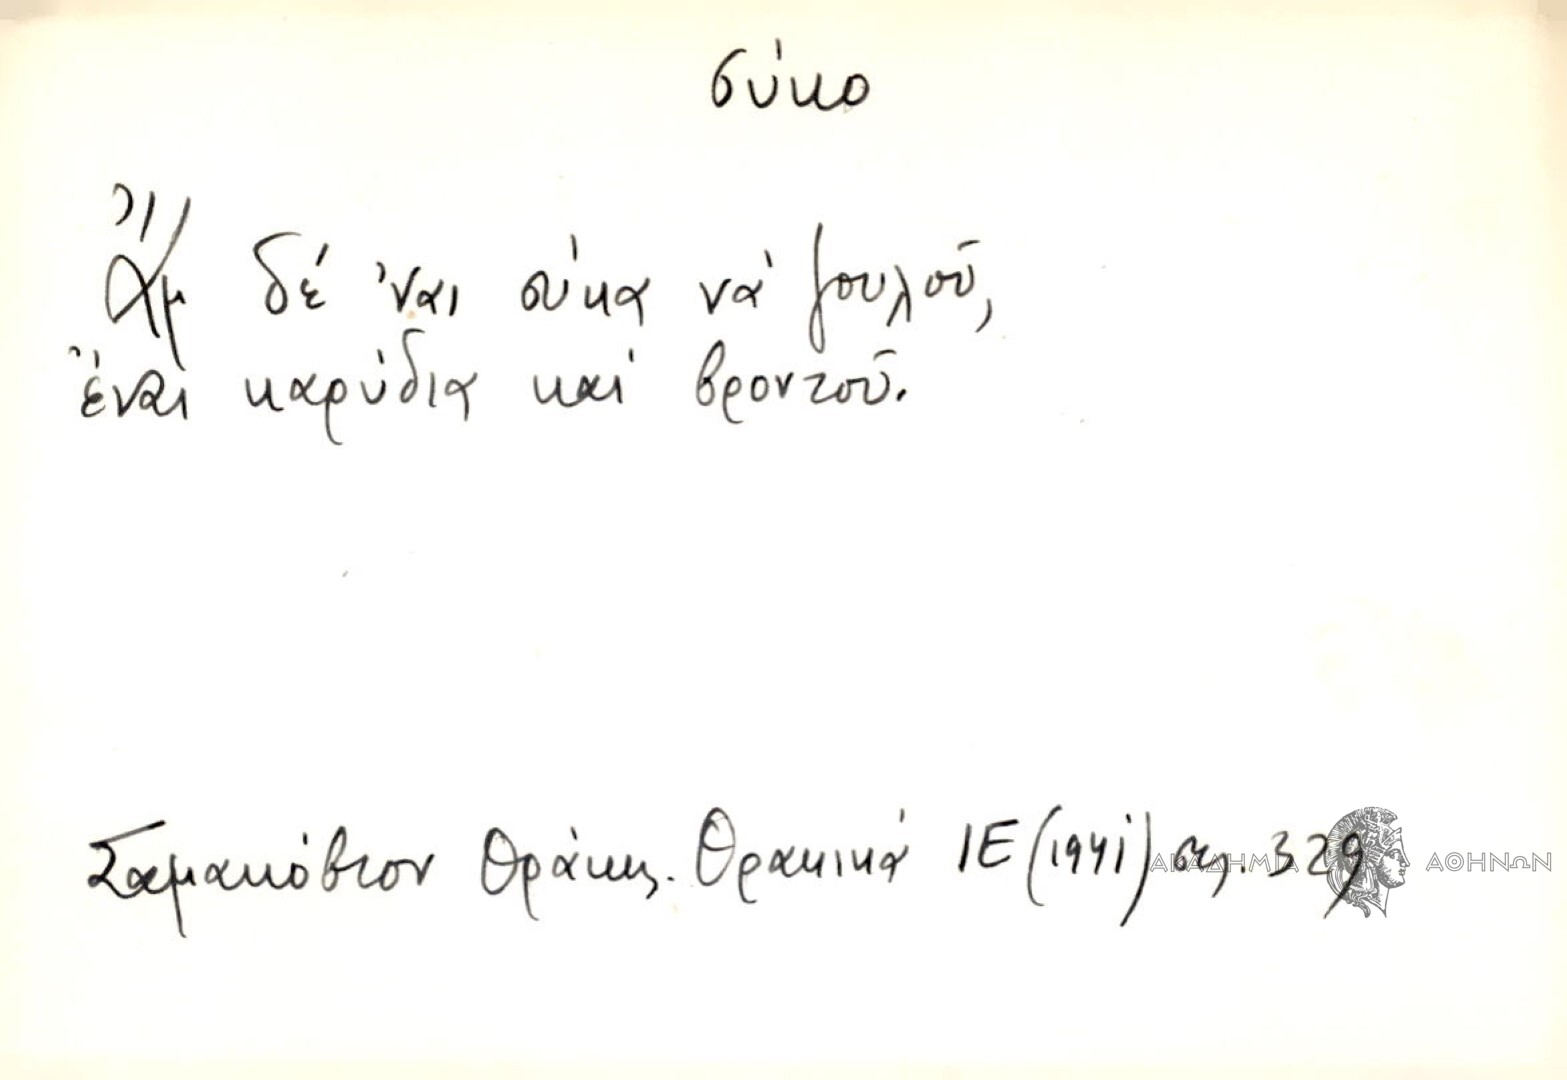 σύκο
Ἄμ δέ 'ναι σύκα νά ζουλοῦ,
ἔναι καρύδια καί βροντοῦ.
Σαμακόβιον Θράκης. Θρακικά ΙΕ (1941) σελ. 329
ΑΚΑΔΗΜΙΑ ΑΘΗΝΩΝ